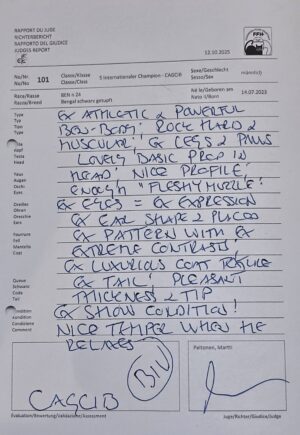 RAPPORT DU JUGE
RICHTERBERICHT
RAPPORTO DEL GIUDICE
JUDGES REPORT
FFH
12.10.2025
No/Nr. 101 Classe/Klasse 5 Internationaler Champion - CAGCIB Sexe/Geschlecht männlich
No/No Classe/Class Sesso/Sex
Race/Rasse BEN n 24 Né le/Geboren am 14.07.2023
Razza/Breed Bengal schwarz getupft Nato il/Born
Type
Typ
Tipo
Type
Tête
Kopf
Testa
Head
Yeux
Augen
Occhi
Eyes
Oreilles
Ohren
Orecchie
Ears
Fourrure
Fell
Mantello
Coat
Queue
Schwanz
Coda
Tail
Condition
Kondition
Condizione
Condition
Comment
EX ATHLETIC & POWERFUL
BEN-BODY! ROCK HARD &
MUSCULAR! EX LEGS & PAWS
LOVELY BASIC PROP IN
HEAD! NICE PROFILE!
ENOUGH "FLESHY MUZZLE"!
EX EYES = EX EXPRESSION
EX EAR SHAPE & PLACED
EX PATTERN WITH EX
EXTREME CONTRASTS!
EX LUXURIOUS COAT TEXTURE
EX TAIL! PLEASANT
THICKNESS & TIP
EX SHOW CONDITION!
NICE TEMPER WHEN HE
RELAXES
BIV
CAGCIB
Peltonen, Martti
Evaluation/Bewertung/Valutazione/Assessment
Juge/Richter/Giudice/Judge